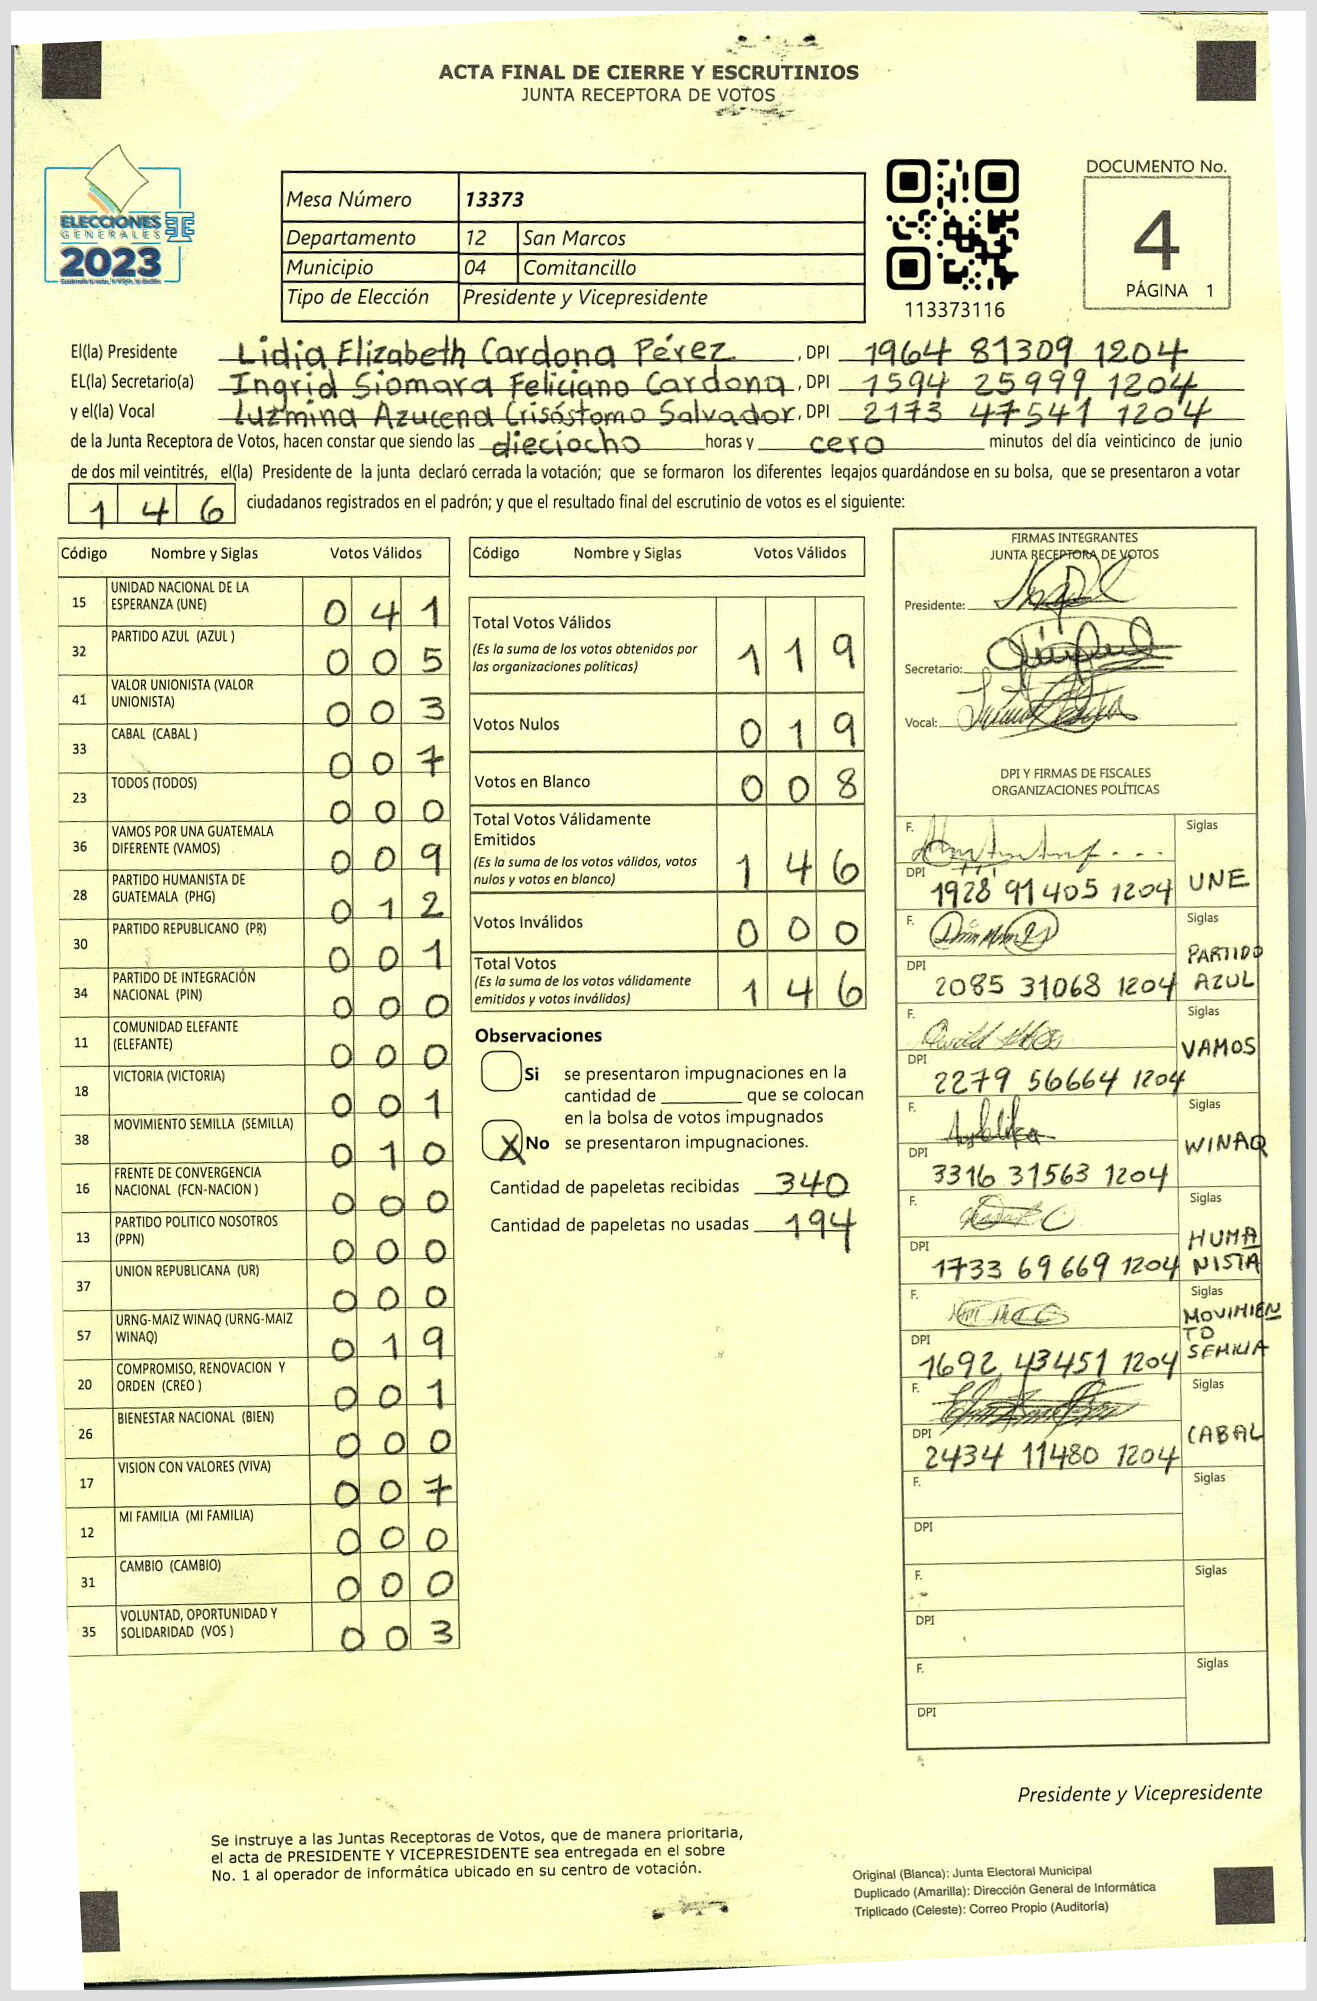 ACTA FINAL DE CIERRE Y ESCRUTINIOS
JUNTA RECEPTORA DE VOTOS
ELECCIONES
GENERALES
2023
TSE
Mesa Número 13373
Departamento 12 San Marcos
Municipio 04 Comitancillo
Tipo de Elección Presidente y Vicepresidente
113373116
DOCUMENTO No.
4
PÁGINA 1
El(la) Presidente Lidia Elizabeth Cardona Pérez, DPI 1964 81309 1204
EL(la) Secretario(a) Ingrid Siomara Feliciano Cardona, DPI 1594 25999 1204
y el(la) Vocal Luzmina Azucena Crisóstomo Salvador, DPI 2173 47541 1204
de la Junta Receptora de Votos, hacen constar que siendo las dieciocho horas y cero minutos del día veinticinco de junio
de dos mil veintitrés, el(la) Presidente de la junta declaró cerrada la votación; que se formaron los diferentes legajos guardándose en su bolsa, que se presentaron a votar
146 ciudadanos registrados en el padrón; y que el resultado final del escrutinio de votos es el siguiente:
Código Nombre y Siglas Votos Válidos
15 UNIDAD NACIONAL DE LA
ESPERANZA (UNE) 041
32 PARTIDO AZUL (AZUL ) 005
41 VALOR UNIONISTA (VALOR
UNIONISTA) 003
33 CABAL (CABAL ) 007
23 TODOS (TODOS) 000
36 VAMOS POR UNA GUATEMALA
DIFERENTE (VAMOS) 009
28 PARTIDO HUMANISTA DE
GUATEMALA (PHG) 012
30 PARTIDO REPUBLICANO (PR) 001
34 PARTIDO DE INTEGRACIÓN
NACIONAL (PIN) 000
11 COMUNIDAD ELEFANTE
(ELEFANTE) 000
18 VICTORIA (VICTORIA) 001
38 MOVIMIENTO SEMILLA (SEMILLA) 010
16 FRENTE DE CONVERGENCIA
NACIONAL (FCN-NACION ) 000
13 PARTIDO POLITICO NOSOTROS
(PPN) 000
37 UNION REPUBLICANA (UR) 000
57 URNG-MAIZ WINAQ (URNG-MAIZ
WINAQ) 019
20 COMPROMISO, RENOVACION Y
ORDEN (CREO ) 001
26 BIENESTAR NACIONAL (BIEN) 000
17 VISION CON VALORES (VIVA) 007
12 MI FAMILIA (MI FAMILIA) 000
31 CAMBIO (CAMBIO) 000
35 VOLUNTAD, OPORTUNIDAD Y
SOLIDARIDAD (VOS ) 003
Código Nombre y Siglas Votos Válidos
Total Votos Válidos 119
(Es la suma de los votos obtenidos por
las organizaciones políticas)
Votos Nulos 019
Votos en Blanco 008
Total Votos Válidamente
Emitidos 146
(Es la suma de los votos válidos, votos
nulos y votos en blanco)
Votos Inválidos 000
Total Votos 146
(Es la suma de los votos válidamente
emitidos y votos inválidos)
Observaciones
Si se presentaron impugnaciones en la
cantidad de ________ que se colocan
en la bolsa de votos impugnados
X No se presentaron impugnaciones.
Cantidad de papeletas recibidas 340
Cantidad de papeletas no usadas 194
FIRMAS INTEGRANTES
JUNTA RECEPTORA DE VOTOS
Presidente:
Secretario:
Vocal:
DPI Y FIRMAS DE FISCALES
ORGANIZACIONES POLÍTICAS
F. Siglas
DPI 1928 91405 1204 UNE
F. Siglas
DPI 2085 31068 1204 PARTIDO
AZUL
F. Siglas
DPI 2279 56664 1204 VAMOS
F. Siglas
DPI 3316 31563 1204 WINAQ
F. Siglas
DPI 1733 69669 1204 HUMA
NISTA
F. Siglas
DPI 1692 43451 1204 MOVIMIEN
TO
SEMILLA
F. Siglas
DPI 2434 11480 1204 CABAL
F. Siglas
DPI
F. Siglas
DPI
F. Siglas
DPI
Presidente y Vicepresidente
Se instruye a las Juntas Receptoras de Votos, que de manera prioritaria,
el acta de PRESIDENTE Y VICEPRESIDENTE sea entregada en el sobre
No. 1 al operador de informática ubicado en su centro de votación.
Original (Blanca): Junta Electoral Municipal
Duplicado (Amarilla): Dirección General de Informática
Triplicado (Celeste): Correo Propio (Auditoría)